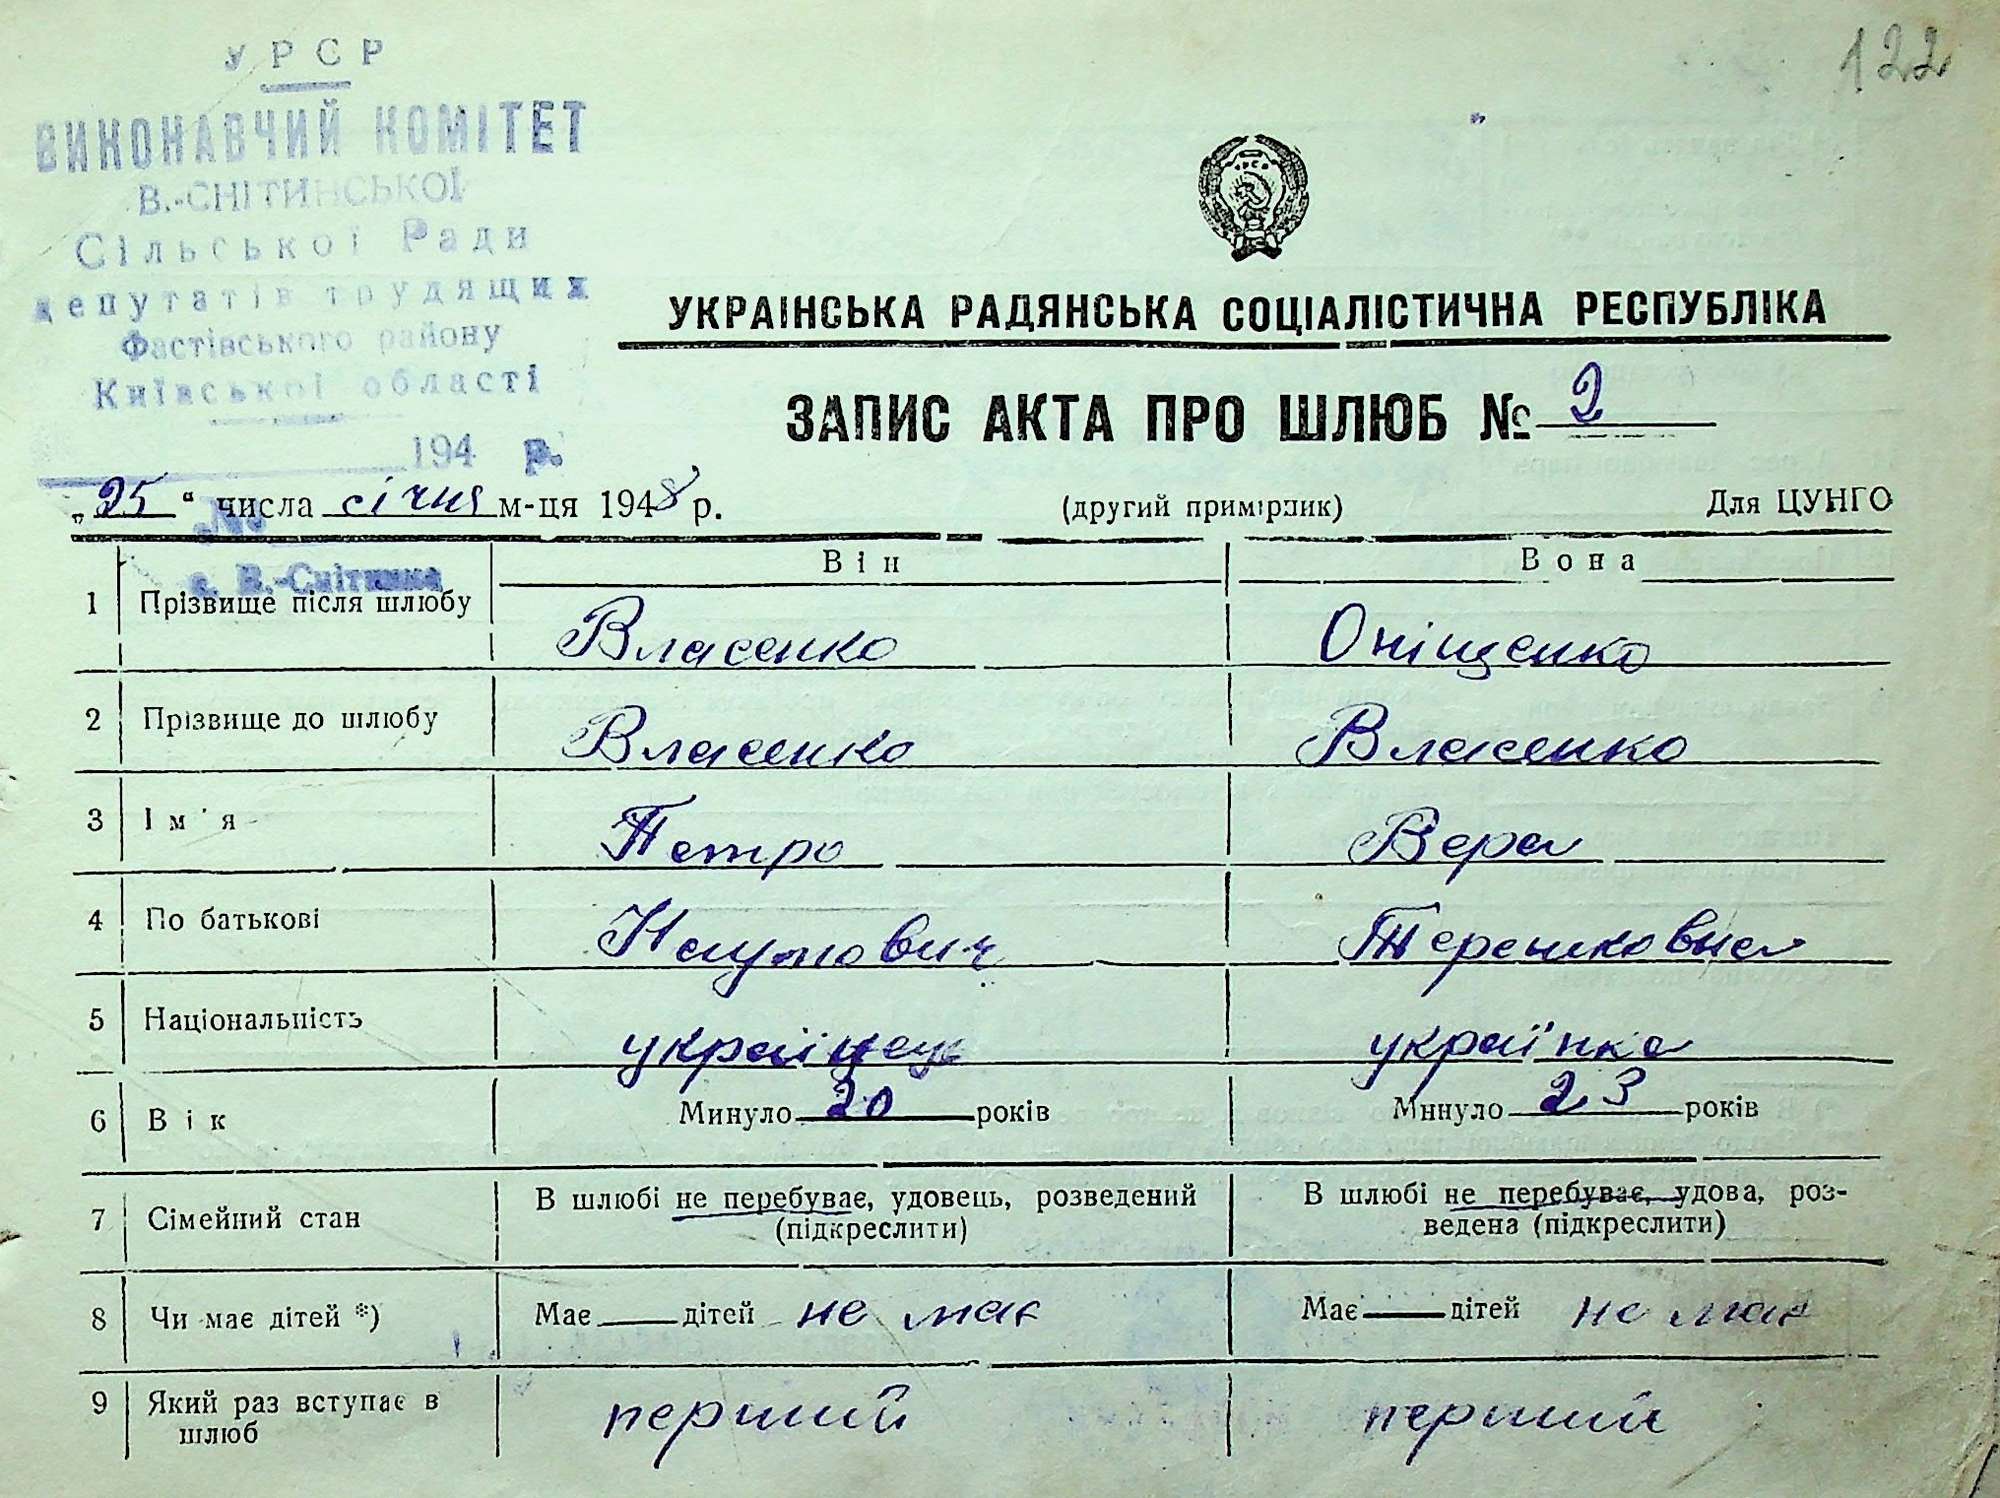 122
УРСР
ВИКОНАВЧИЙ КОМІТЕТ
В.-СНІТИНСЬКОЇ
Сільської Ради
депутатів трудящих
Фастівського району
Київської області
194 р.
№
с. В.-Снітинка
УРСР
УКРАЇНСЬКА РАДЯНСЬКА СОЦІАЛІСТИЧНА РЕСПУБЛІКА
ЗАПИС АКТА ПРО ШЛЮБ № 2
„25“ числа січня м-ця 1948 р. (другий примірник) Для ЦУНГО
Він Вона
1 Прізвище після шлюбу Власенко Оніщенко
2 Прізвище до шлюбу Власенко Власенко
3 Ім'я Петро Вера
4 По батькові Наумович Терешковна
5 Національність українець українка
6 Вік Минуло 20 років Минуло 23 років
7 Сімейний стан В шлюбі не перебуває, удовець, розведений (підкреслити) В шлюбі не перебуває, удова, роз-
ведена (підкреслити)
8 Чи має дітей *) Має дітей не має Має дітей не має
9 Який раз вступає в шлюб перший перший